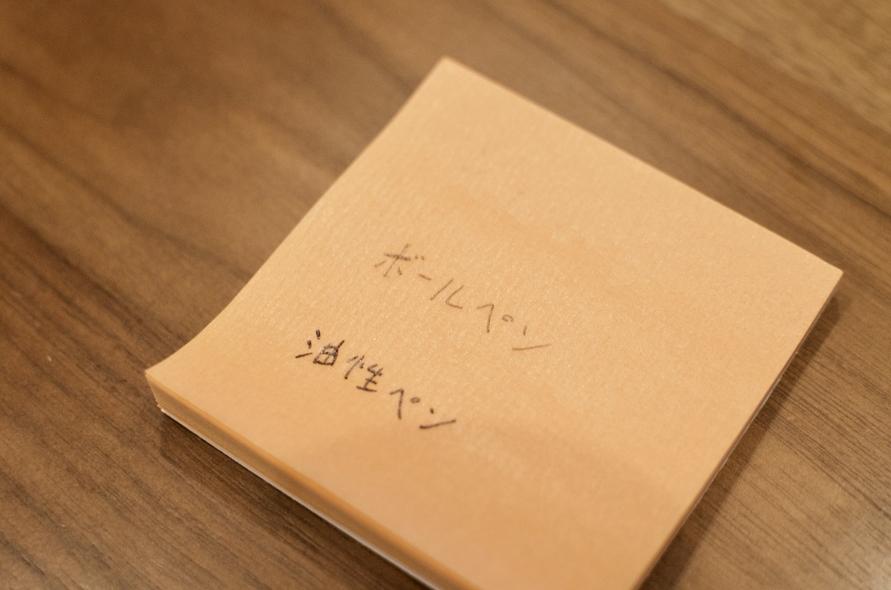 ボールペン
油性ペン